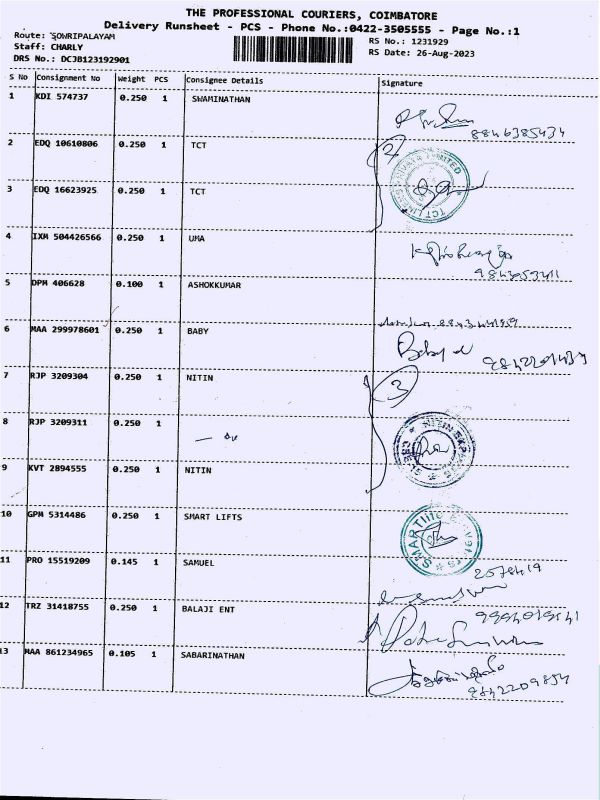 THE PROFESSIONAL COURIERS, COIMBATORE
Delivery Runsheet - PCS - Phone No.:0422-3505555 - Page No.:1
Route: SOWRIPALAYAM
RS No.: 1231929
Staff: CHARLY
RS Date: 26-Aug-2023
DRS No.: DCJB123192901
S No Consignment No Weight PCS Consignee Details Signature
1 KDI 574737 0.250 1 SWAMINATHAN
8846385434
2 EDQ 10610806 0.250 1 TCT
2
3 EDQ 16623925 0.250 1 TCT
4 IXM 504426566 0.250 1 UMA
5 DPM 406628 0.100 1 ASHOKKUMAR
6 MAA 299978601 0.250 1 BABY
Baby
7 RJP 3209304 0.250 1 NITIN
3
8 RJP 3209311 0.250 1
9 KVT 2894555 0.250 1 NITIN
10 GPM 5314486 0.250 1 SMART LIFTS
11 PRO 15519209 0.145 1 SAMUEL
12 TRZ 31418755 0.250 1 BALAJI ENT
13 MAA 861234965 0.105 1 SABARINATHAN
9842209854